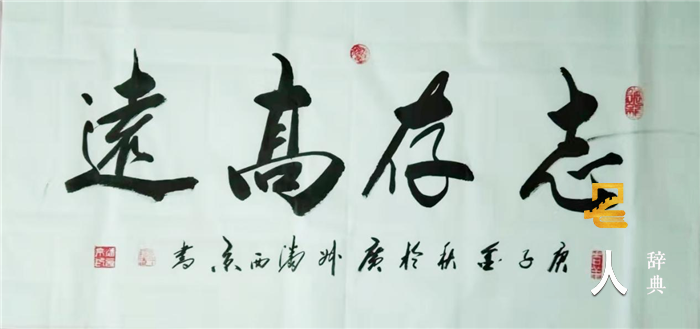 志存高遠
庚子金秋於廣州满西京書
人
辞典